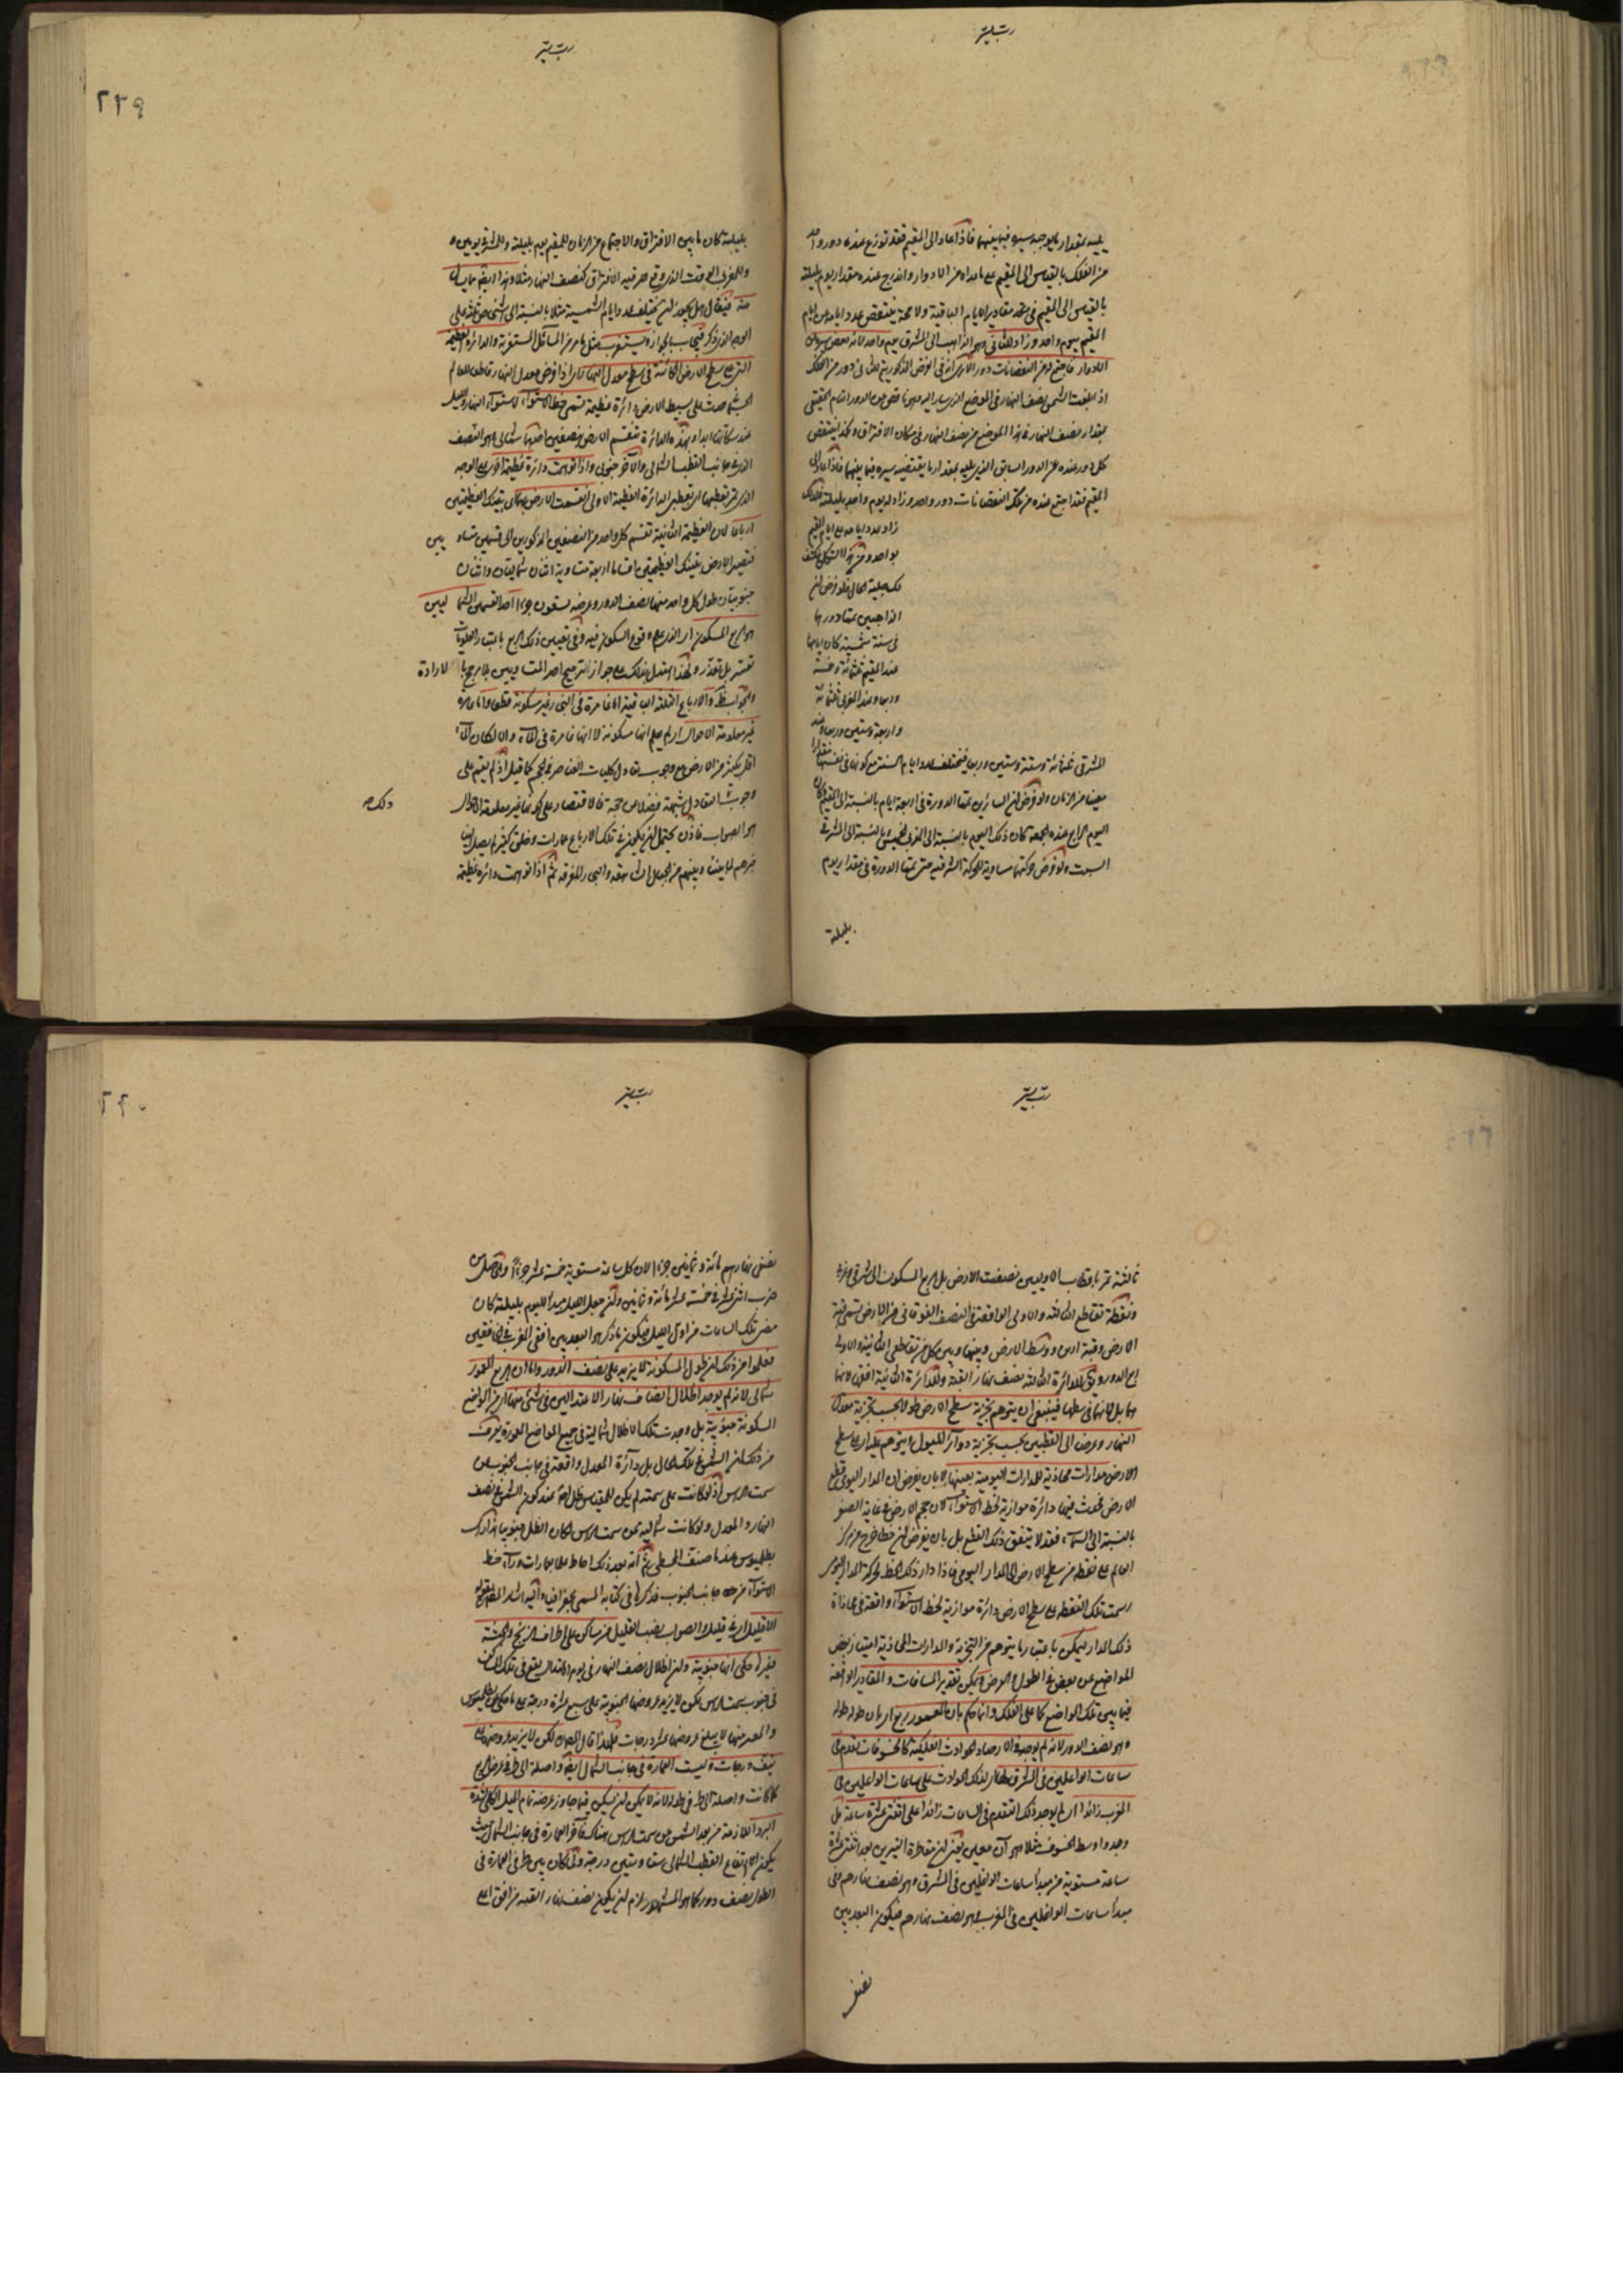 يليه بمقدار ما يوجبه سيره فيما بينهما فاذا عاد الى المقيم فقد توزع عنده دور واحد
من الفلك بالقياس الى المقيم على ما عداه من الادوار واندرج عنده مقدار يوم بليلته
بالقياس الى المقيم في مقادير الايام الباقية ولا محة ينتقص عدد ايامه من ايام
المقيم بيوم واحد وزاد للثاني وهو الذاهب الى المشرق يوم واحد لانه نقص سيره من
الادوار فاجتمع له من النقصانات دور
اذا بلغت الشمس نصف النهار في الموضع الذي سار اليه وهو ناقص عن الدور التام الحقيقي
بمقدار نصف النهار في هذا الموضع من نصف النهار في مكان الافتراق وكذا ينتقص
كل دور عنده عن الدور السابق الذي يليه بمقدار ما يقتضيه سيره فيما بينهما فاذا عاد الى
المقيم فقد اجتمع عنده من تلك النقصانات دور واحد وزاد له يوم واحد بليلته فلذلك
زاد عدد ايامه على ايام المقيم
بواحد ومن هذا الشكل ينكشف
لك جلية الحال فلو فرض ان
الذاهبين تمما دورهما
في سنة شمسية كان ايامها
عند المقيم ثلثمائة وخمسة
وستين وربعا وعند المغربي ثلثمائة
واربعة وستين وربعا وعند
المشرقي ثلثمائة وستة وستين وربعا فيختلف عدد ايام السنة مع كونها في نفسها مقدارا
معينا من الزمان ولو فرض ان السائرين تمما الدورة في اربعة ايام بالنسبة الى المقيم وكان
اليوم الرابع عنده الجمعة كان ذلك اليوم بالنسبة الى المغربي الخميس وبالنسبة الى المشرقي
السبت ولو فرض حركتهما مساوية للحركة الشرقية حتى تمما الدورة في مقدار يوم
بليلته
٢٣٩
بليلته كان ما بين الافتراق والاجتماع من الزمان للمقيم يوم بليلته وللمشرقي يومين و
وللمغربي الوقت الذي وقع فيه الافتراق كنصف النهار مثلا وهذا ايضا مما يسأل
عنه فيقال هل يجوز ان يختلف عدد ايام الشمسية مثلا بالنسبة الى اشخاص ثلثة على
الوجه الذي ذكر فيجاب بالجواز ويستغرب مثل ما مر من المسائل المستغربة والدائرة العظيمة
التي على سطح الارض الكائنة في سطح معدل النهار اي اذا فرض معدل النهار قاطعا للعالم
حدثت على بسيط الارض دائرة عظيمة تسمى خط الاستواء لاستواء النهار والليل
عند سكانها ابدا وبهذه الدائرة تنقسم الارض بنصفين احدهما شمالي وهو النصف
الذي في جانب القطب الشمالي والآخر جنوبي واذا توهمت دائرة عظيمة اخرى على الوجه
الذي تمر بقطبيها اي بقطبي الدائرة العظيمة الاولى انقسمت الارض بهما اي بتينك العظيمتين
ارباعا لان العظيمة الثانية تقسم كل واحد من النصفين المذكورين الى قسمين متساويين
فتصير الارض بتينك العظيمتين اقساما اربعة متساوية اثنان شماليتان واثنان
جنوبيتان طول كل واحد منها نصف الدور وعرضه تسعون جزءا احد القسمين الشماليين
هو الربع المسكون اي الذي علم وقوع السكون فيه وفي تعيين ذلك الربع
تعسر بل تعذر ولهذا استدل بذلك على جواز الترجيح احد المتساويين بلا مرجح بالارادة
والارباع الثلثة الباقية اما غامرة في البحر غير مسكونة قطعا واما عامرة
غير معلومة الاحوال اي لم يعلم انها مسكونة لا انها غامرة في الماء والا لكان الماء
اقل بكثير من الارض مع وجوب تعادل كليات العناصر في الحجم كما قيل اذ لم يقم على
وجوب التعادل شبهة فضلا عن حجة فالاقتصار على كونها غير معلومة الاحوال
هو الصواب فاذن يحتمل ان يكون في تلك الارباع عمارات وخلق كثير لم يصل الينا
خبرهم لما بيننا وبينهم من الجبال الشاهقة والبحار المغرقة ثم اذا توهمت دائرة عظيمة
٢٤٠
ثالثة تمر باقطاب الاوليين نصفت الارض بل الربع المسكون الى شرقي وغربي
ونقطة تقاطع الثالثة والاولى الواقعة في النصف الفوقاني من الارض تسمى قبة
الارض وقبة ارين ووسط الارض وبينها وبين كل من تقاطعي الثانية والاولى
ربع الدور ويسمى الدائرة الثالثة نصف نهار القبة والدائرة الثانية افقها لانها
فينبغي ان يتوهم تجزية سطح الارض طولا بحسب تجزية معدل
النهار وعرضا الى القطبين بحسب تجزية دوائر الميول ويتوهم عليه اي على سطح
الارض مدارات محاذية للمدارات اليومية بعينها لا بان يفرض ان المدار اليومي قطع
الارض فحدث فيها دائرة موازية لخط الاستواء لان حجم الارض في غاية الصغر
بالنسبة الى السماء فقد لا يتفق ذلك القطع بل بان يفرض ان خطا خرج من مركز
العالم على نقطة من سطح الارض الى المدار اليومي فاذا دار ذلك الخط بحركة المدار اليومي
رسمت تلك النقطة على سطح الارض دائرة موازية لخط الاستواء واقعة في محاذاة
ذلك المدار ليمكن باعتبار ما يتوهم من التجزية والمدارات المحاذية امتياز بعض
المواضع عن بعض في الطول والعرض ويمكن تقدير المسافات والمقادير الواقعة
فيما بين تلك المواضع كما على الفلك وانما حكم بان المعمور ربع
وهو نصف الدور لانه لم يوجد في الارصاد الحوادث الفلكية كالخسوفات تقدم في
ساعات الواغلين في المشرق لتلك الحوادث على ساعات الواغلين في
المغرب زائدا اي لم يوجد ذلك التقدم في الساعات زائدا على اثنتي عشرة ساعة بل
وجدوا وسط الخسوف مثلا وهو آن معين
ساعة مستوية من مبدأ ساعات الواغلين في المشرق وهو نصف نهارهم وفي
مبدأ ساعات الواغلين في المغرب وهو نصف نهارهم فيكون البعد بين
نصفي
نصفي نهارهم مائة وثمانين جزءا لان كل ساعة مستوية خمسة عشر جزءا والحاصل من
ضرب اثني عشر في خمسة عشر مائة وثمانين وان جعل الليل مبدأ لليوم بليلته كان
مضي تلك الساعات من اول الليل فيكون ما ذكر هو البعد بين افقي المغرب
فعلموا من ذلك ان طول المسكونة لا يزيد على نصف الدور واما ان الربع المعمور
شمالي لانه لم يوجد اظلال انصاف نهار الاعتدالين في شيء منها اي من المواضع
المسكونة جنوبية بل وجدت تلك الاظلال شمالية في جميع المواضع المعمورة فعرف
من ذلك ان الشمس في تلك الحال بل دائرة المعدل واقعة في جانب الجنوب من
سمت الراس اذ لو كانت على سمته لم يكن للمقياس ظل اصلا عند كون الشمس في نصف
النهار والمعدل ولو كانت شمالية عن سمت الراس لكان الظل جنوبيا هذا رأي
بطلميوس عندما صنف المجسطي ثم انه بعد ذلك احاط علما بعمارات وراء خط
الاستواء من جانب الجنوب فذكرها في كتابه المسمى بجغرافيا واليه اشار المصنف بقوله
الا قليل اي في قليل والصواب نصب القليل من مساكن على اطراف الزنج والحبشة
وغيرها حكي انها جنوبية وان اظلال نصف النهار في يوم الاعتدال يقع في تلك المساكن
في جنوب سمت الراس لكن لا يزيد عروضها الجنوبية على سبع عشرة درجة على ما حكي عن بطلميوس
والمعمور منها لا يبلغ عروضها عشر درجات فلهذا قال المصنف لكن لا يزيد عروضها على
نيف درجات وليست العمارة في جانب الشمال ايضا واصلة الى
كما كانت واصلة الى طرفي طوله لانه لا يمكن ان يسكن فيما جاوز عرضه تمام الميل الكلي لشدة
البرد اللازمة من بعد الشمس عن سمت الراس هناك فآخر العمارة في جانب الشمال حيث
يكون ارتفاع القطب الشمالي ستا وستين درجة ولما كان بين طرفي العمارة في
الطول نصف دور كما هو المشهور لزم ان يكون نصف نهار القبة من افق اعلى